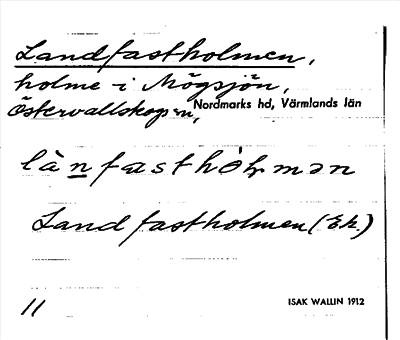 Landfastholmen,
holme i Mögsjön,
Östervallskogen, Nordmarks hd, Värmlands län
lànfasthòḷmən
Landfastholmen (Ek.)
11 ISAK WALLIN 1912